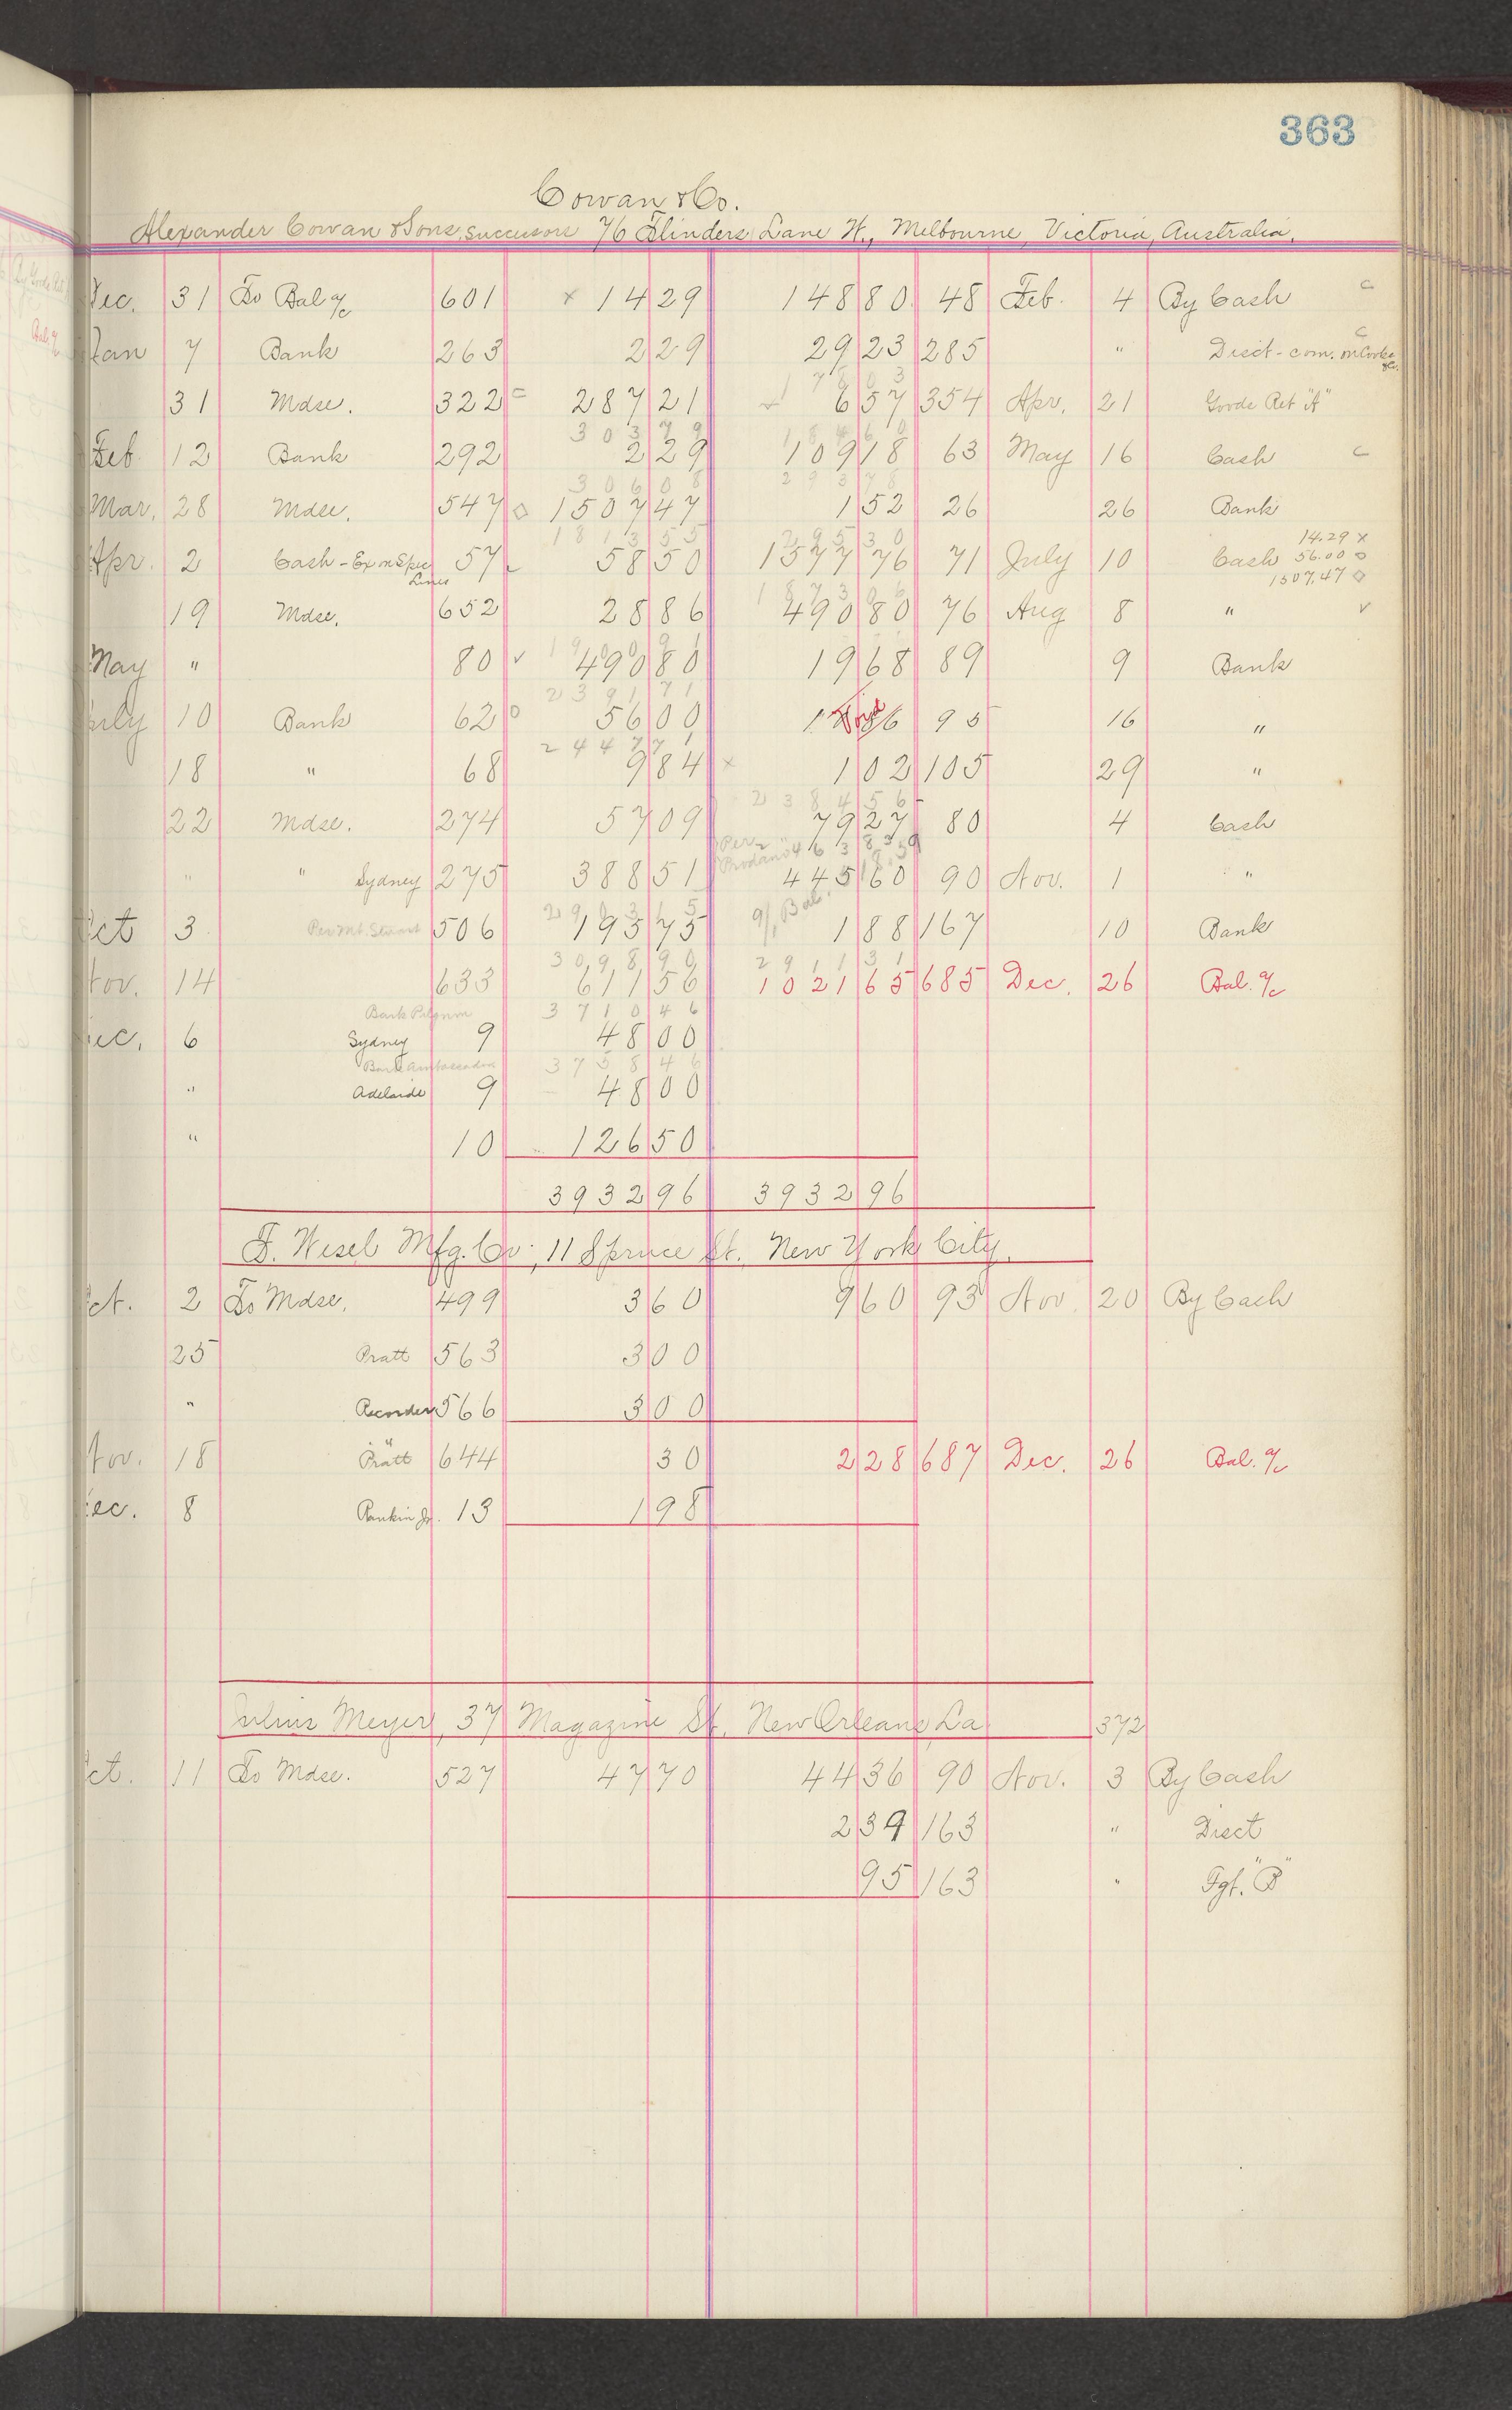 363
Cowan & Co.
Alexander Cowan & Sons, successors 76 Flinders Lane W., Melbourne, Victoria, Australia.
Dec. 31 To Bal a/c 601 x 14 29 148 80 48 Feb. 4 By Cash c
Jan 7 Bank 263 2 29 29 23 285 " Disct - com. c
1 7 8 0 3
31 Mdse. 322 = 287 21 6 57 354 Apr. 21 Goods Ret "A"
3 0 3 7 9 1 8 4 6 0
Feb 12 Bank 292 2 29 109 18 63 May 16 Cash c
3 0 6 0 8 2 9 3 7 8
Mar. 28 Mdse. 547 ◇ 1507 47 1 52 26 26 Bank
1 8 1 3 5 5 2 9 5 3 0 14.29 x
Apr. 2 Cash - Ex on Spec Lines 57 58 50 1577 76 71 July 10 Cash 56.00 o
1507.47 ◇
1 8 7 3 0 6
19 Mdse. 652 28 86 490 80 76 Aug 8 " v
1 9 0 0 9 1
May " 80 v 490 80 19 68 89 9 Bank
2 3 9 1 7 1
July 10 Bank 62 o 56 00 Void 95 16 "
2 4 4 7 7 1
18 " 68 9 84 x 1 02 105 29 "
2 3 8 4 5 6
22 Mdse. 274 57 09 79 27 80 4 Cash
Per
" " Sydney 275 388 51 445 60 90 Nov. 1 "
2 9 0 3 1 5 a/c Bal.
Oct 3 Per Mt. Stewart 506 195 75 1 88 167 10 Bank
3 0 9 8 9 0 2 9 1 1 3 1
Nov. 14 633 611 56 1021 65 685 Dec. 26 Bal. a/c
Bark 3 7 1 0 4 6
Dec. 6 Sydney 9 48 00
Bark Ambassador 3 7 5 8 4 6
" Adelaide 9 48 00
" 10 126 50
3932 96 3932 96
F. Wesel Mfg. Co., 11 Spruce St. New York City.
Oct. 2 To Mdse. 499 3 60 9 60 93 Nov 20 By Cash
25 Pratt 563 3 00
" Recorder 566 3 00
Nov. 18 " Pratt 644 30 2 28 687 Dec. 26 Bal. a/c
Dec. 8 Rankin Jr. 13 1 98
Julius Meyer, 37 Magazine St. New Orleans, La 372
Oct. 11 To Mdse. 527 47 70 44 36 90 Nov. 3 By Cash
2 39 163 " Disct
95 163 " Fgt. "B"